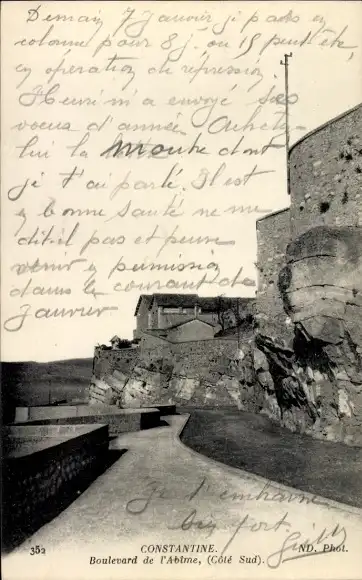 Demain 7 Janvier je pars en
colonne pour 8 j. ou 15 peut être,
en opération de répression
Henri m'a envoyé ses
voeux d'année. Achète-
lui la montre dont
je t'ai parlé. Il est
en bonne santé ne me
dit-il pas et pense
venir en permission
dans le courant de
Janvier
Je t'embrasse
bien fort
352
CONSTANTINE.
ND. Phot.
Boulevard de l'Abîme, (Côté Sud).